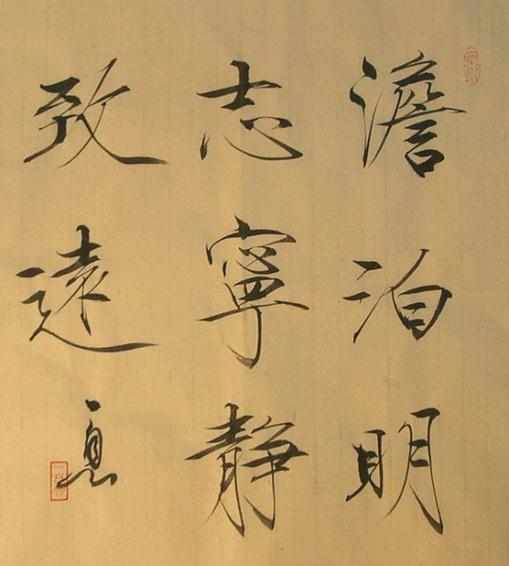 澹泊明
志寧靜
致遠息